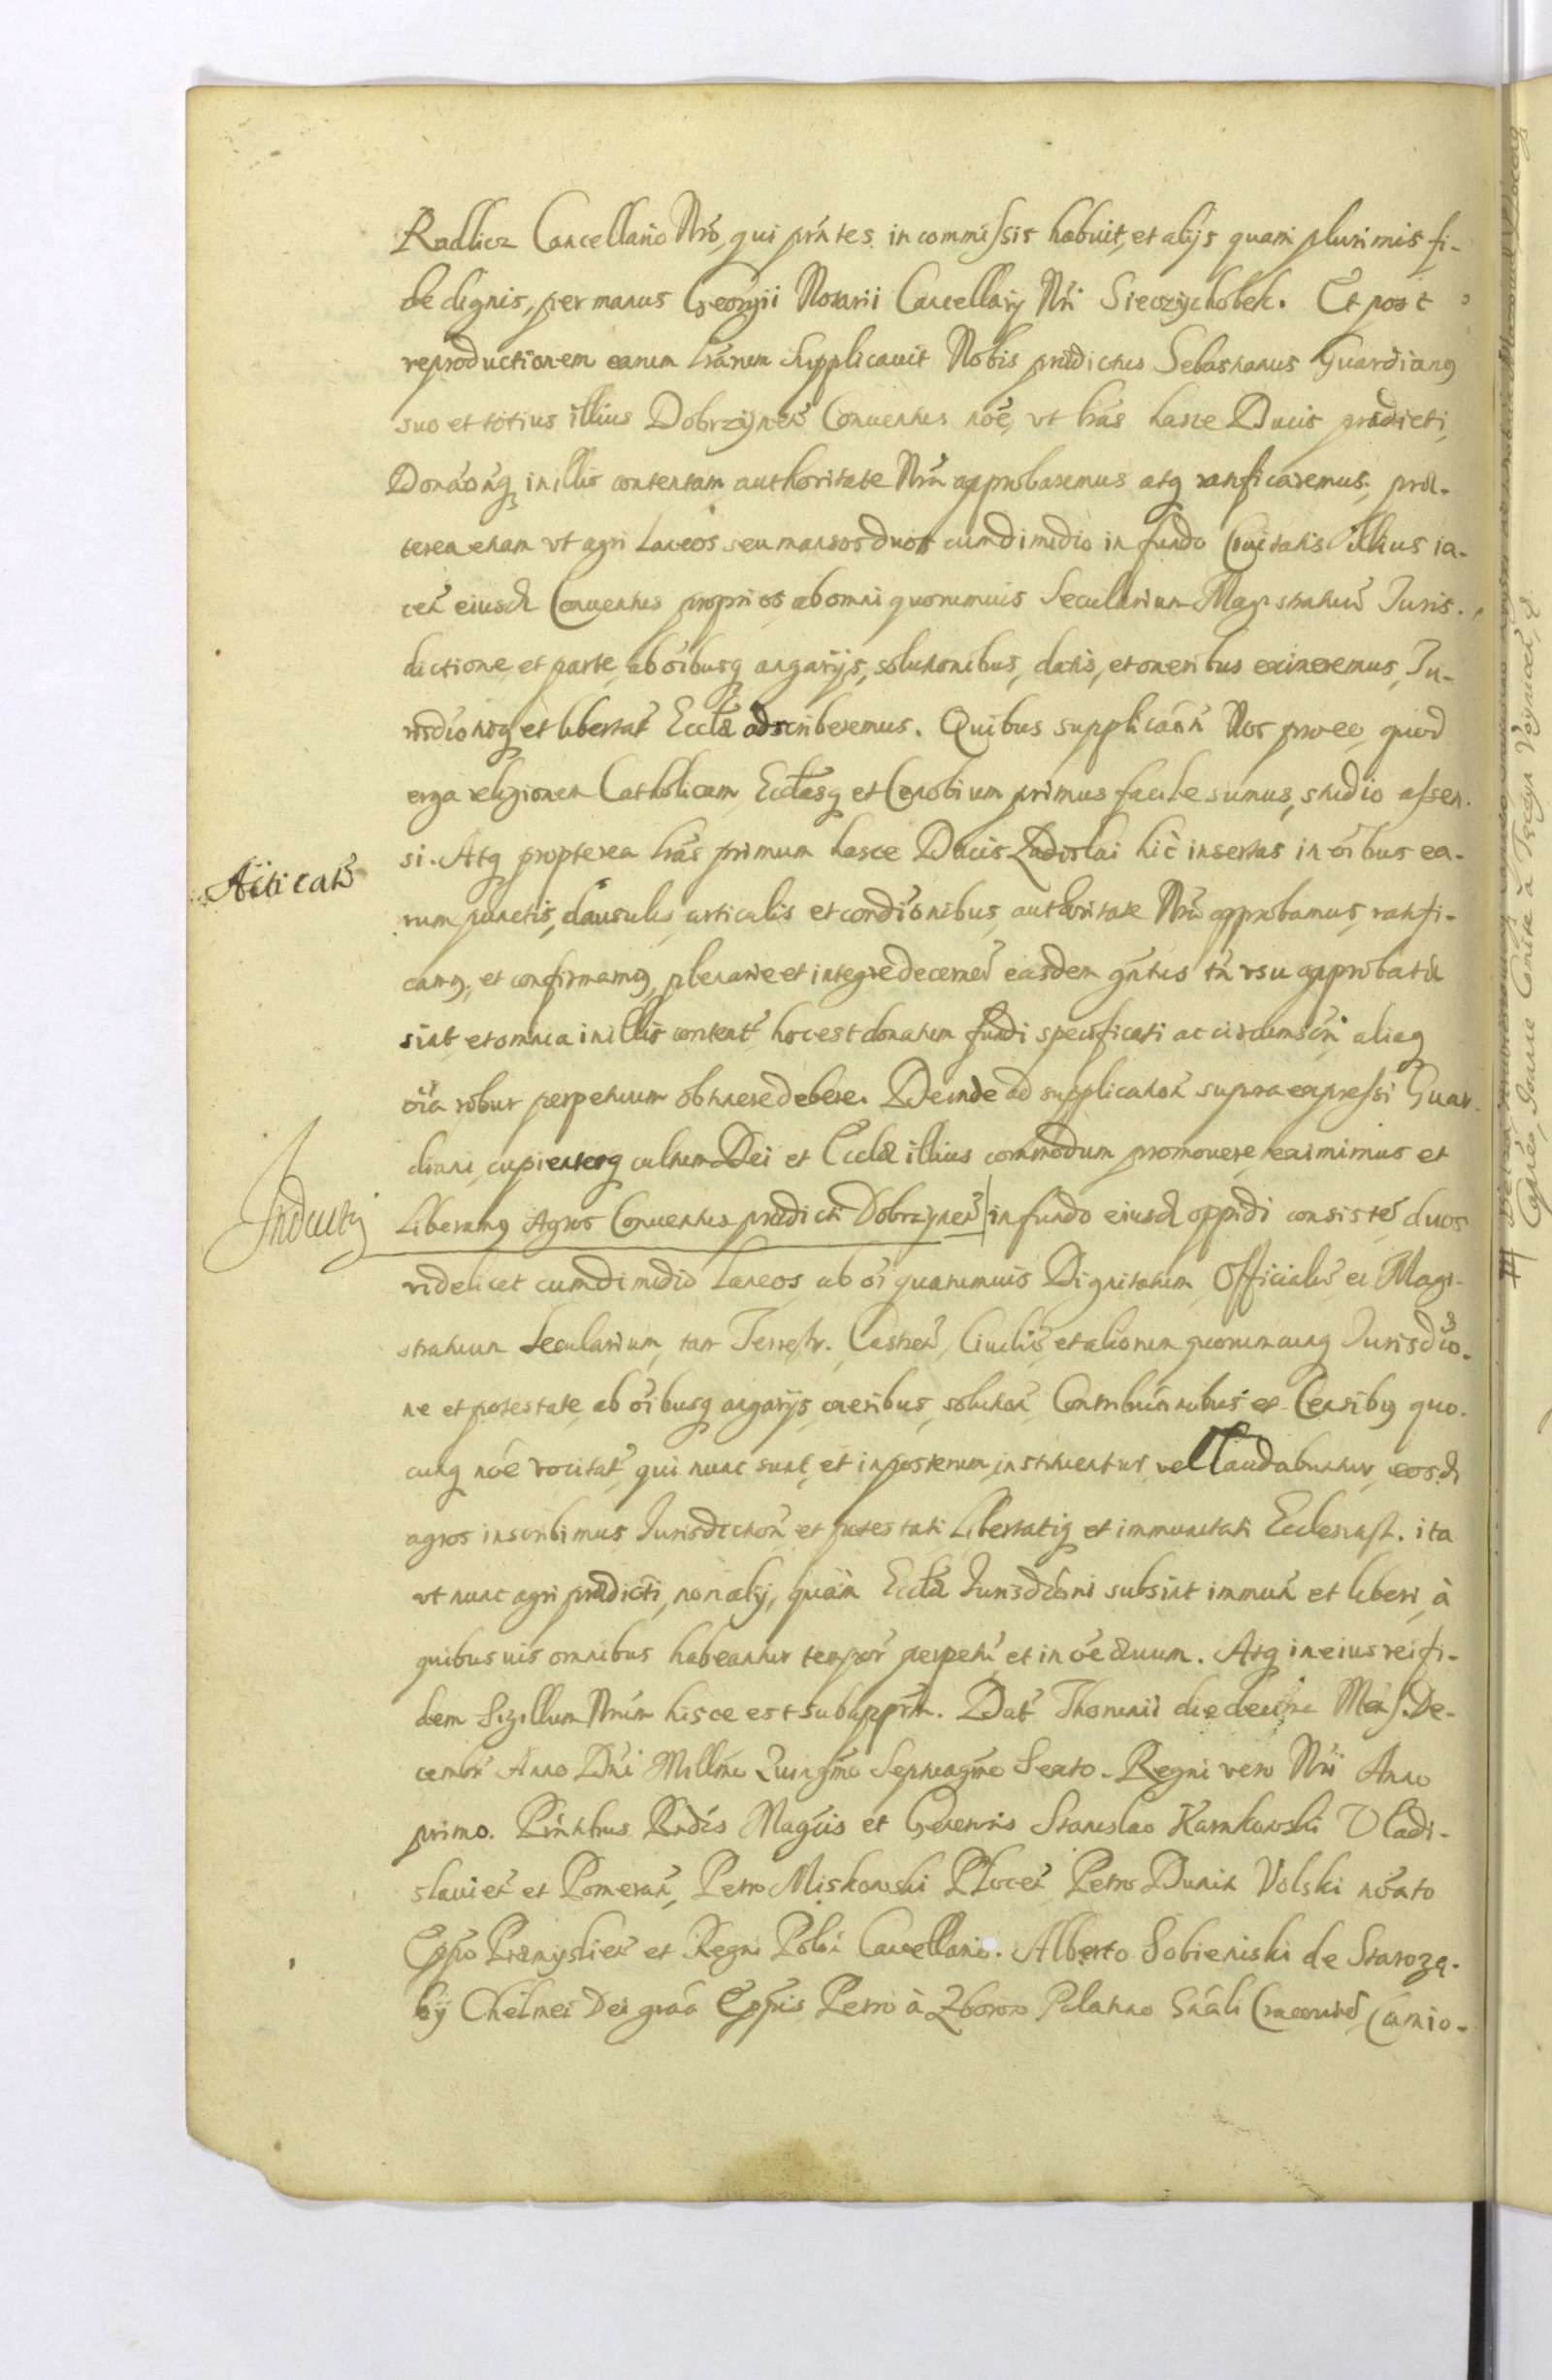 Radlicz Cancellario Nrō, qui prńtes in commissis habuit, et alijs quam plurimis fi-
de dignis, per manus Georgii Notarii Cancellarij Nri Sieczychobek. Et post
reproductionem earum lrārum supplicauit Nobis prædictus Sebastianus Guardianq
suo et totius illius Dobrzÿnen̄ Conuentus noē, vt lrās hasce Ducis prædicti,
Donāoñq in illis contentam authoritate Nrā approbaremus atq ratificaremus, præ-
terea etiam vt agri Laneos seu mansos duos cum dimidio in fundo Ciuitatis illius ia-
cen̄ eiusd Conuentus proprios ab omni quorumuis Secularium Magistratuū Juris-
dictione et parte, ab oībusq angarijs, solutionibus, datis, et oneribus eximeremus, Ju-
risdiōniq et libertati Ecclæ adscriberemus. Quibus supplicāōn̄ Nos pro eo, quod
erga religionem Catholicam Ecclāsq et Cœnobium primus facile sumus, studio assen-
si. Atq propterea lrās primum hasce Ducis Ladislai hic insertas in oībus ea-
Acticatō
rum punctis, clausulis, articulis et condiōnibus, authoritate Nrā approbamus, ratifi-
camq, et confirmamq, plenarie et integre decernen̄ easdem q̄ntus in̄ vsu approbatæ
sint et omnia in illis content̄ hoc est donatum fundi specificati ac circumscri aliaq
oīa robur perpetuum obtinere debere. Deinde ad supplication̄ supra expressi Guar-
diani, cupientesq cultum Dei et Ecclæ illius commodum promouere, eximimus et
Inducta
Liberamq Agros Conuentus prædicti Dobrzynen̄ in fundo eiusd oppidi consisten̄ duos
videlicet cum dimidio Laneos, ab oī quarumuis Dignitatum Officialiū et Magi-
stratuum Secularium, tam Terrestr. Castren̄, Ciuiliū, et aliorum quorumcunq Jurisdiō-
ne et potestate, ab oībusq angarijs, oneribus, solution̄ Contribuōnibus et Censibq quo-
cunq noē vocitat̄, qui nunc sunt, et in posterum instituentur vel laudabuntur, eosd
agros inscribimus Jurisdiction̄ et potestati Libertatiq et immunitati Ecclesiast. ita
vt nunc agri prædicti, non alij, quām Ecclæ Jurisdiōni subsint immun̄ et liberi, à
quibusuis omnibus habeantur tempor̄ perpetui et in oē æuum. Atq in eius rei fi-
dem Sigillum Nrūm hisce est subappr̄n. Dat̄ Thorunii die decima Mens. De-
cembr̄ Anno Dni Millmo Quingmo Septuagmo Sexto. Regni vero Nri Anno
primo. Prńtibus Rndis Magcis et Generosis Stanislao Karnkowski Vladi-
slauien̄ et Pomeran̄, Petro Miskowski Plocen̄, Petro Dunin Volski nōato
Eppo Præmyslien̄ et Regni Polōe Cancellario. Alberto Sobieiuski de Starozę-
by Chelmen̄ Dei grāā Eppis Petro à Zborow Palatino Gnāli Cracouien̄, Camio-